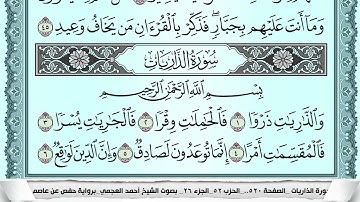 وَمَا أَنتَ عَلَيْهِم بِجَبَّارٍ فَذَكِّرْ بِالْقُرْءَانِ مَن يَخَافُ وَعِيدِ ٤٥
سُورَةُ الذَّارِيَاتِ
بِسْمِ اللَّهِ الرَّحْمَٰنِ الرَّحِيمِ
وَالذَّارِيَاتِ ذَرْوًا ١ فَالْحَامِلَاتِ وِقْرًا ٢ فَالْجَارِيَاتِ يُسْرًا ٣
فَالْمُقَسِّمَاتِ أَمْرًا ٤ إِنَّمَا تُوعَدُونَ لَصَادِقٌ ٥ وَإِنَّ الدِّينَ لَوَاقِعٌ ٦
ورة الذاريات _الصفحة ٥٢٠_ الحزب ٥٢_ الجزء ٢٦_ بصوت الشيخ احمد العجمي _برواية حفص عن عاصم